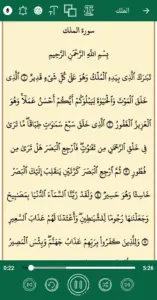 الملك
سورة الملك
بِسْمِ اللَّهِ الرَّحْمَٰنِ الرَّحِيمِ
تَبَارَكَ الَّذِي بِيَدِهِ الْمُلْكُ وَهُوَ عَلَىٰ كُلِّ شَيْءٍ قَدِيرٌ ۝ الَّذِي
خَلَقَ الْمَوْتَ وَالْحَيَاةَ لِيَبْلُوَكُمْ أَيُّكُمْ أَحْسَنُ عَمَلًا وَهُوَ
الْعَزِيزُ الْغَفُورُ ۝ الَّذِي خَلَقَ سَبْعَ سَمَاوَاتٍ طِبَاقًا مَّا تَرَىٰ
فِي خَلْقِ الرَّحْمَٰنِ مِن تَفَاوُتٍ فَارْجِعِ الْبَصَرَ هَلْ تَرَىٰ مِن
فُطُورٍ ۝ ثُمَّ ارْجِعِ الْبَصَرَ كَرَّتَيْنِ يَنقَلِبْ إِلَيْكَ الْبَصَرُ
خَاسِئًا وَهُوَ حَسِيرٌ ۝ وَلَقَدْ زَيَّنَّا السَّمَاءَ الدُّنْيَا بِمَصَابِيحَ
وَجَعَلْنَاهَا رُجُومًا لِّلشَّيَاطِينِ وَأَعْتَدْنَا لَهُمْ عَذَابَ السَّعِيرِ
۝ وَلِلَّذِينَ كَفَرُوا بِرَبِّهِمْ عَذَابُ جَهَنَّمَ وَبِئْسَ الْمَصِيرُ
0:22 5:26